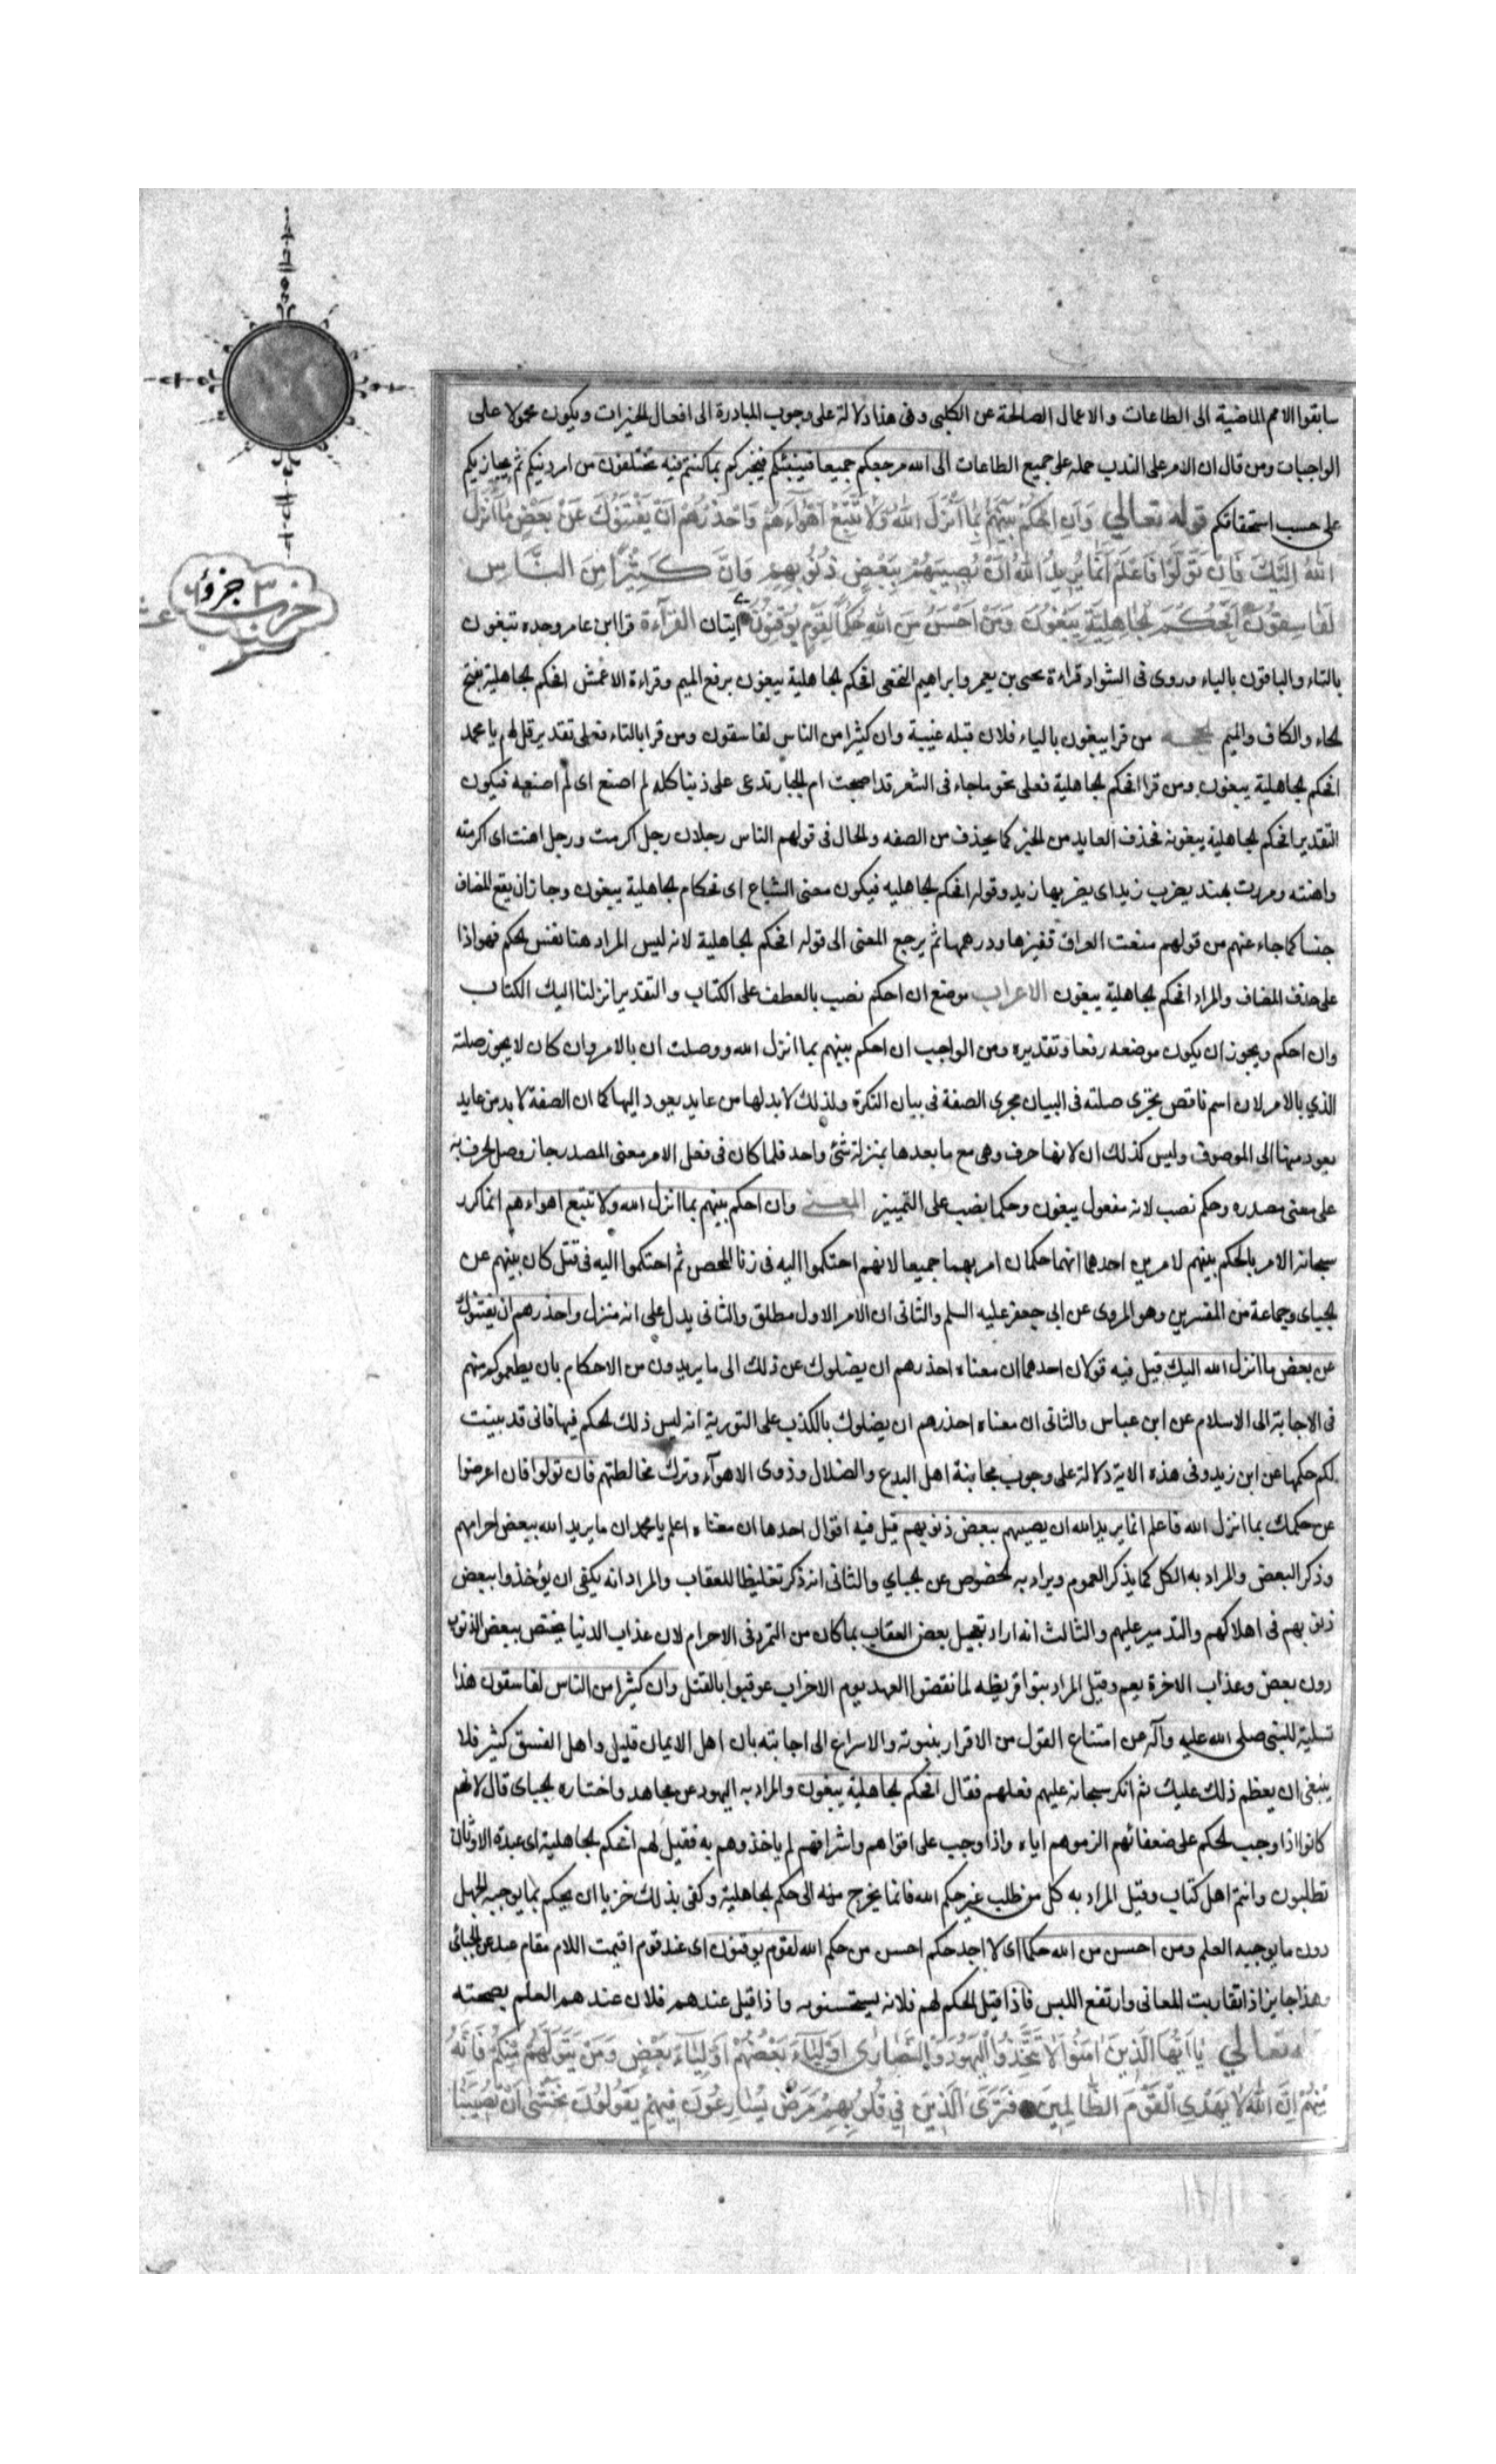 سابقوا الامم الماضية الى الطاعات والاعمال الصالحة عن الكلبى وفى هذا دلالة على وجوب المبادرة الى افعال الخيرات ويكون محمولا على
الواجبات ومن قال ان الامر على الندب حمله على جميع الطاعات الى الله مرجعكم جميعا فينبئكم فيخبركم بما كنتم فيه تختلفون من امر دينكم ثم يجازيكم
على حسب استحقاقكم قوله تعالي وَاَنِ احْكُمْ بَيْنَهُمْ بِمَا اَنْزَلَ اللهُ وَلَا تَتَّبِعْ اَهْوَاءَهُمْ وَاحْذَرْهُمْ اَنْ يَفْتِنُوكَ عَنْ بَعْضِ مَا اَنْزَلَ
اللهُ اِلَيْكَ فَاِنْ تَوَلَّوْا فَاعْلَمْ اَنَّمَا يُرِيدُ اللهُ اَنْ يُصِيبَهُمْ بِبَعْضِ ذُنُوبِهِمْ وَاِنَّ كَثِيْرًا مِنَ النَّاسِ
لَفَاسِقُونَ اَفَحُكْمَ لجَاهِلِيَّةِ يَبْغُونَ وَمَنْ اَحْسَنُ مِنَ اللهِ حُكْمًا لِقَوْمٍ يُوقِنُونَ ايتان القرآءة قرا ابن عامر وحده تبغون
بالتاء والباقون بالياء وروى فى الشواذ قراءة يحيى بن يعمر وابراهيم النخعى افحكم لجاهلية يبغون برفع الميم وقراءة الاعمش افحكم لجاهلية بفتح
لحاء والكاف والميم من قرا يبغون بالياء فلان قبله غيبة وان كثيرا من الناس لفاسقون ومن قرا بالتاء فعلى تقدير قل لهم يا محمد
افحكم لجاهلية يبغون ومن قرا افحكم لجاهلية فعلى نحو ما جاء فى الشعر قد اصبحت ام الخيار تدعى على ذنبا كله لم اصنع اى لم اصنعه فيكون
التقدير افحكم لجاهلية يبغونه فحذف العايد من الخبر كما يحذف من الصفه ولحال فى قولهم الناس رجلان رجل اكرمت ورجل اهنت اى اكرمته
واهنته ومررت بهند يضرب زيد اى يضربها زيد وقوله افحكم لجاهليه فيكون معنى الشياع اى فحكام لجاهلية يبغون وجاز ان يقع المضاف
جنسا كما جاء عنهم من قولهم منعت العراق قفيزها ودرهمها ثم يرجع المعنى الى قوله افحكم لجاهلية لانه ليس المراد هنا نفس لحكم فهو اذا
على حذف المضاف والمراد افحكم لجاهلية يبغون الاعراب موضع ان احكم نصب بالعطف على الكتاب والتقدير انزلنا اليك الكتاب
وان احكم ويجوز ان يكون موضعه رفعا وتقديره ومن الواجب ان احكم بينهم بما انزل الله ووصلت ان بالامر وان كان لا يجوز صلة
الذي بالامر لان اسم ناقص يجزى صلته فى البيان مجرى الصفة فى بيان النكرة ولذلك لا بد لها من عايد يعود اليها كما ان الصفة لا بد من عايد
يعود منها الى الموصوف وليس كذلك ان لانها حرف وهى مع ما بعدها بمنزلة شئ واحد فلما كان فى فعل الامر معنى المصدر جاز وصل لحرف به
على معنى مصدره وحكم نصب لانه مفعول يبغون وحكما نصب على التمييز المعنى وان احكم بينهم بما انزل الله ولا تتبع اهواءهم انما كرر
سبحانه الامر بالحكم بينهم لامرين احدهما انهما حكمان امر بهما جميعا لانهم احتكموا اليه فى زنا المحصن ثم احتكموا اليه فى قتل كان بينهم عن
لجبائى وجماعة من المفسرين وهو المروى عن ابى جعفر عليه السلم والثانى ان الامر الاول مطلق والثانى يدل على انه منزل واحذرهم ان يفتنوك
عن بعض ما انزل الله اليك قيل فيه قولان احدهما ان معناه احذرهم ان يضلوك عن ذلك الى ما يريدون من الاحكام بان يطمعوك منهم
فى الاجابة الى الاسلام عن ابن عباس والثانى ان معناه احذرهم ان يضلوك بالكذب على التورية انه ليس ذلك لحكم فيها فانى قد بينت
لكم حكمها عن ابن زيد وفى هذه الاية دلالة على وجوب مجانبة اهل البدع والضلال وذوى الاهوآء وترك مخالطتهم فان تولوا فان اعرضوا
عن حكمك بما انزل الله فاعلم انما يريد الله ان يصيبهم ببعض ذنوبهم قيل فيه اقوال احدها ان معناه اعلم يا محمد ان ما يريد الله ببعض اجرامهم
وذكر البعض والمراد به الكل كما يذكر العموم ويراد به لخصوص عن لجبائي والثانى انه ذكر تغليظا للعقاب والمراد انه يكفى ان يؤخذوا ببعض
ذنوبهم فى اهلاكهم والتدمير عليهم والثالث انه اراد تعجيل بعض العقاب بما كان من التمرد فى الاجرام لان عذاب الدنيا يختص ببعض الذنوب
دون بعض وعذاب الاخرة يعم وقيل المراد بنوا قريظه لما نقضوا العهد يوم الاحزاب عوقبوا بالقتل وان كثيرا من الناس لفاسقون هذا
تسلية للنبى صلى الله عليه وآله عن امتناع القول من الاقرار بنبوته والاسراع الى اجابته بان اهل الايمان قليل واهل الفسق كثير فلا
ينبغى ان يعظم ذلك عليك ثم انكر سبحانه عليهم فعلهم فقال افحكم لجاهلية يبغون والمراد به اليهود عن مجاهد واختاره لجبائى قال لانهم
كانوا اذا وجب لحكم على ضعفائهم الزموهم اياه واذا وجب على اقواهم واشرافهم لم ياخذوهم به فقيل لهم افحكم لجاهلية اى عبدة الاوثان
تطلبون وانتم اهل كتاب وقيل المراد به كل من طلب غير حكم الله فانما يخرج منه الى حكم لجاهلية وكفى بذلك خزيا ان يحكم بما يوجبه الجهل
دون ما يوجبه العلم ومن احسن من الله حكما اى لا احد حكم احسن من حكم الله لقوم يوقنون اى عند قوم اقيمت اللام مقام عند عن لجبائى
وهذا جايز اذا تقاربت المعانى وارتفع اللبس فاذا قيل لحكم لهم فلانه يستحسنونه واذا قيل عندهم فلان عندهم العلم بصحته
تعالي يَا اَيُّهَا الَّذِينَ آمَنُوا لَا تَتَّخِذُوا الْيَهُودَ وَالنَّصَارَى اَوْلِيَاءَ بَعْضُهُمْ اَوْلِيَاءُ بَعْضٍ وَمَنْ يَتَوَلَّهُمْ مِنْكُمْ فَاِنَّهُ
مِنْهُمْ اِنَّ اللهَ لَا يَهْدِى الْقَوْمَ الظَّالِمِينَ فَتَرَى الَّذِينَ فِي قُلُوبِهِمْ مَرَضٌ يُسَارِعُونَ فِيهِمْ يَقُولُونَ نَخْشَى اَنْ تُصِيبَنَا
حزب ٣ جزو ٦